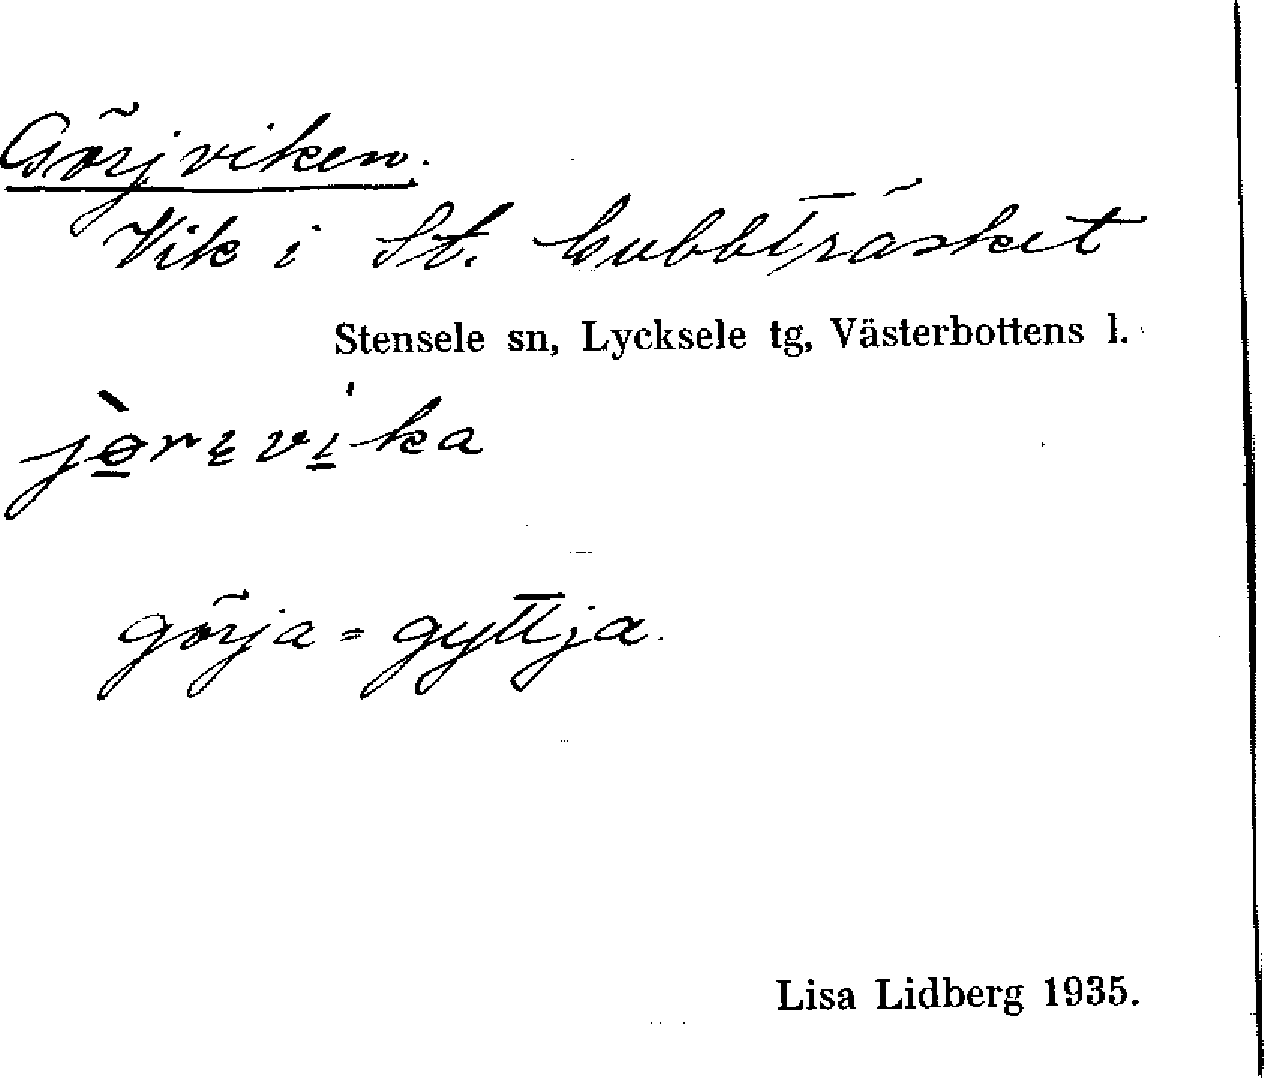 Görjviken.
Vik i St. Gubbträsket
Stensele sn, Lycksele tg, Västerbottens l.
jø̱̀rɛvi̱ka
görja = gyttja.
Lisa Lidberg 1935.